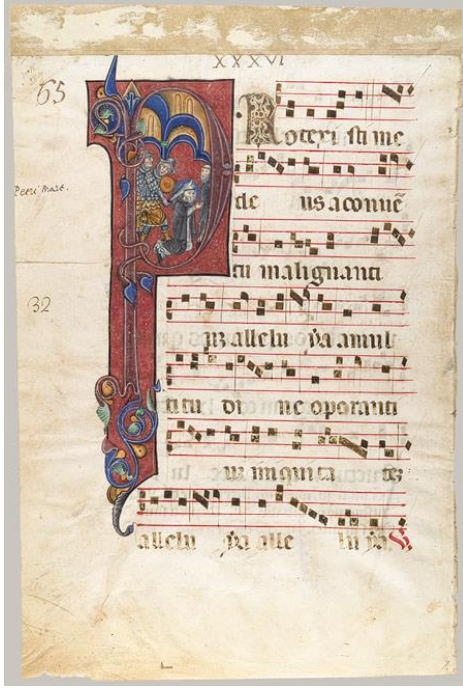 XXXVI
65
Petri Mart.
32
Protexisti me
de us a conuē
tu malignanti
um allelu ya a mul
titu di ne operanti
um iniquita tez
allelu ya alle lu ya. V.